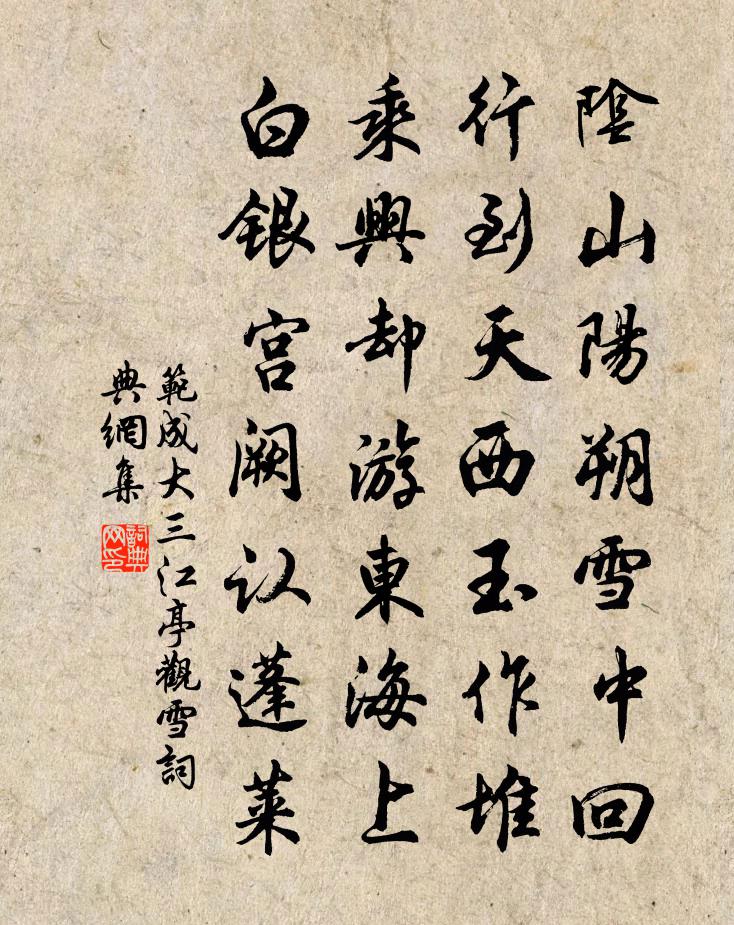 陰山陽朔雪中回
行到天西玉作堆
乘興却游東海上
白銀宮闕认蓬萊
範成大三江亭觀雪詞
典網集
詞典网印